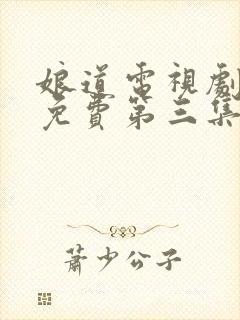 娘道電視劇
免費第三集
蕭少公子